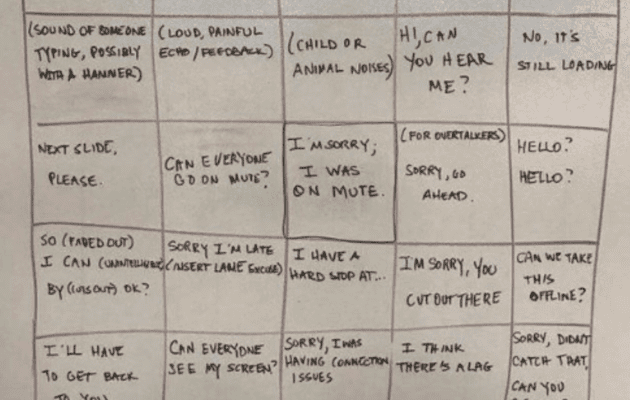 (SOUND OF SOMEONE
TYPING, POSSIBLY
WITH A HAMMER)
(LOUD, PAINFUL
ECHO/FEEDBACK)
(CHILD OR
ANIMAL NOISES)
HI, CAN
YOU HEAR
ME?
NO, IT'S
STILL LOADING
NEXT SLIDE,
PLEASE.
CAN EVERYONE
GO ON MUTE?
I'M SORRY;
I WAS
ON MUTE.
(FOR OVERTALKERS)
SORRY, GO
AHEAD.
HELLO?
HELLO?
SO (FADED OUT)
I CAN (UNINTELLIGIBLE)
BY (CUTS OUT) OK?
SORRY I'M LATE
(INSERT LAME EXCUSE)
I HAVE A
HARD STOP AT...
I'M SORRY, YOU
CUT OUT THERE
CAN WE TAKE
THIS
OFFLINE?
I'LL HAVE
TO GET BACK
TO YOU
CAN EVERYONE
SEE MY SCREEN?
SORRY, I WAS
HAVING CONNECTION
ISSUES
I THINK
THERE'S A LAG
SORRY, DIDN'T
CATCH THAT,
CAN YOU